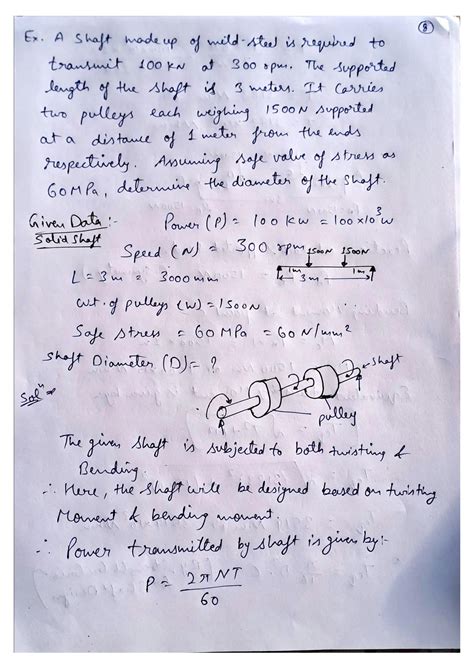 ⑧
Ex. A shaft made up of mild-steel is required to
transmit 100 KN at 300 rpm. The supported
length of the shaft is 3 meters. It carries
two pulleys each weighing 1500 N supported
at a distance of 1 meter from the ends
respectively. Assuming safe value of stress as
60 MPa, determine the diameter of the shaft.
Given Data :- Power (P) = 100 KW = 100×10³ W
Solid Shaft
Speed (N) = 300 rpm
1500N 1500N
L = 3m = 3000 mm
1m 3m 1m
wt. of pulleys (W) = 1500N
Safe stress = 60 MPa = 60 N/mm²
Shaft Diameter (D) = ?
Solⁿ
shaft
pulley
The given shaft is subjected to both twisting &
Bending
∴ Here, the shaft will be designed based on twisting
Moment & bending moment
∴ Power transmitted by shaft is given by:-
P = 2πNT
60